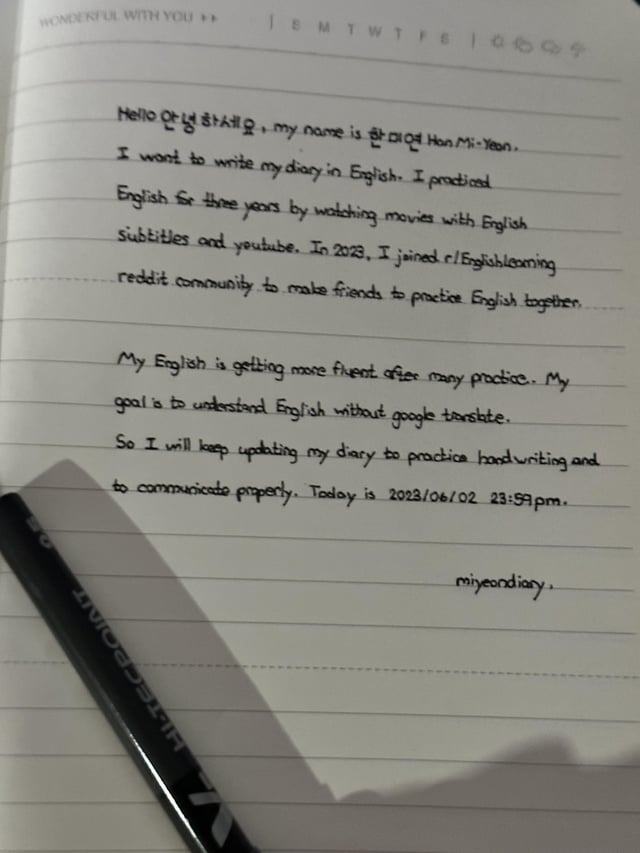 WONDERFUL WITH YOU ▸▸ | S M T W T F S |
Hello 안녕하세요, my name is 한미연 Han Mi-Yeon.
I want to write my diary in English. I practiced
English for three years by watching movies with English
subtitles and youtube. In 2023, I joined r/Englishlearning
reddit community to make friends to practice English together.
My English is getting more fluent after many practice.. My
goal is to understand English without google translate.
So I will keep updating my diary to practice handwriting and
to communicate properly. Today is 2023/06/02 23:59pm.
miyeondiary.
V5 HI-TECPOINT 0.5